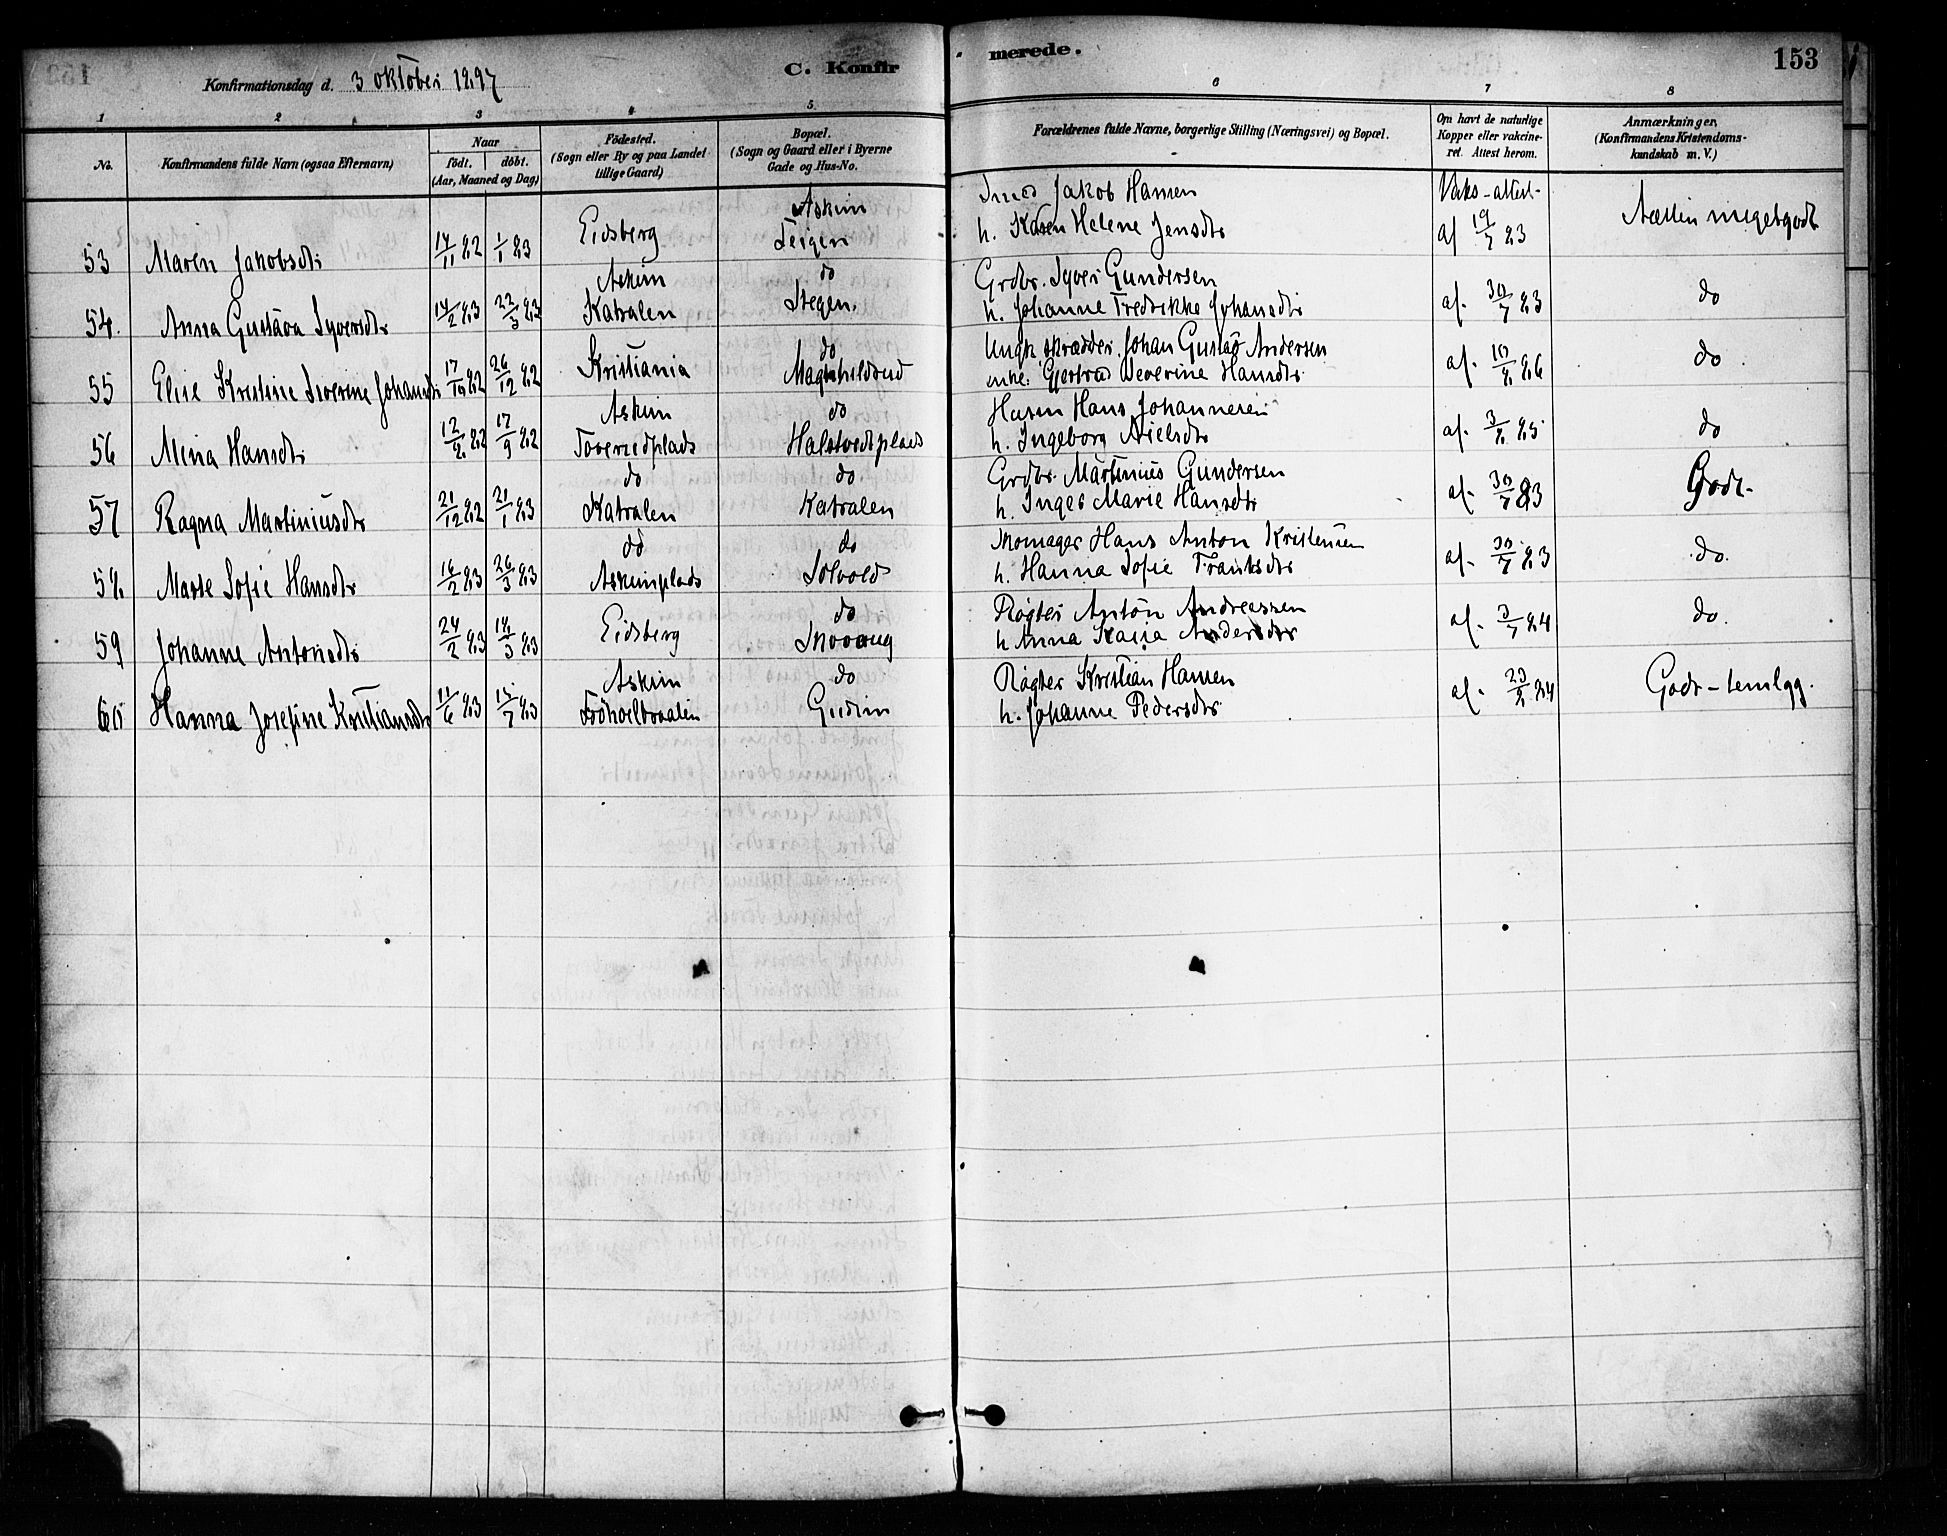 153
Konfirmationsdag d. 3 oktober 1897
C. Konfirmerede.
1 2 3 4 5 6 7 8
No.
Konfirmandens fulde Navn (ogsaa Efternavn)
Naar
födt. döbt.
(Aar, Maaned og Dag)
Födested.
(Sogn eller By og paa Landet
tillige Gaard)
Bopæl.
(Sogn og Gaard eller i Byerne
Gade og Hus-No.
Forældrenes fulde Navne, borgerlige Stilling (Næringsvei) og Bopæl.
Om havt de naturlige
Kopper eller vakcine-
ret. Attest herom.
Anmærkninger,
(Konfirmandens Kristendoms-
kundskab m. V.)
53 Maren Jakobsdtr 14/11 82 1/1 83 Eidsberg Askim Teigen
Smed Jakob Hansen
h. Karen Helene Jensdtr
Vaks-attest-
af 19/7 83 Næsten megetgodt
54. Anna Gustava Syversdtr 14/2 83 22/3 83 Askim Katralen do Stegen
Grdbr. Syver Gundersen
h. Johanne Fredrikke Johansdtr
af. 30/7 83 do
55 Elise Kristine Severine Johansdtr 17/10 82 26/12 82 Kristiania do Magnhildrud
Ungk. skrædder Johan Gustav Andersen
enke. Gjertrud Severine Hansdtr
af. 10/8 86 do
56 Mina Hansdtr 12/8 82 17/9 82 Askim Toverudplads do Halstvedtplads
Husm Hans Johannesen
h. Ingeborg Nielsdtr
af. 3/8 85 do
57 Ragna Martiniusdtr 21/12 82 21/1 83 do Katralen do Katralen
Grdbr. Martinius Gundersen
h. Inger Marie Hansdtr
af. 30/7 83 Godt.
58. Marte Sofie Hansdtr 16/2 83 26/3 83 do Askimplads do Solvold
Skomager Hans Anton Kristensen
h. Hanna Sofie Frantsdtr
af. 30/7 83 do.
59 Johanne Antonsdtr 24/2 83 14/3 83 Eidsberg do
Røgter Anton Andreassen
h Anna Kaisa Andersdtr
af. 3/7 84 do.
60 Hanna Josefine Kristiansdtr 11/6 83 15/7 83 Askim do Gudim
Røgter Kristian Hansen
h. Johanne Pedersdtr
af. 23/8 84 Godt-temlgg.